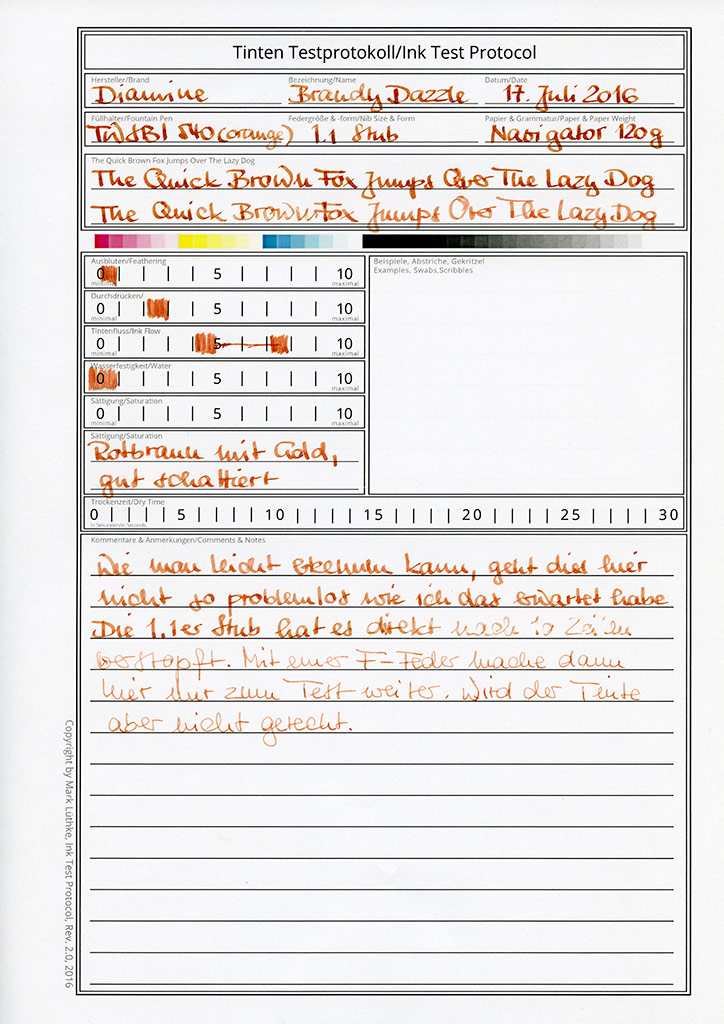 Tinten Testprotokoll/Ink Test Protocol
Hersteller/Brand Bezeichnung/Name Datum/Date
Diamine Brandy Dazzle 17. Juli 2016
Füllhalter/Fountain Pen Federgröße & -form/Nib Size & Form Papier & Grammatur/Paper & Paper Weight
TWSBI 540 (orange) 1.1 Stub Navigator 120g
The Quick Brown Fox Jumps Over The Lazy Dog
The Quick Brown Fox Jumps Over The Lazy Dog
The Quick Brown Fox Jumps Over The Lazy Dog
Ausbluten/Feathering
0 5 10
minimal maximal
Durchdrücken/
0 5 10
minimal maximal
Tintenfluss/Ink Flow
0 5 10
minimal maximal
Wasserfestigkeit/Water
0 5 10
minimal maximal
Sättigung/Saturation
0 5 10
minimal maximal
Sättigung/Saturation
Rotbraun mit Gold,
gut schattiert
Beispiele, Abstriche, Gekritzel
Examples, Swabs,Scribbles
Trockenzeit/Dry Time
0 5 10 15 20 25 30
in Sekunden/in Seconds
Kommentare & Anmerkungen/Comments & Notes
Wie man leicht erkennen kann, geht dies hier
nicht so problemlos wie ich das erwartet habe
Die 1.1er Stub hat es direkt nach 10 Zeilen
verstopft. Mit einer F-Feder mache dann
hier nur zum Test weiter. Wird der Tinte
aber nicht gerecht.
Copyright by Mark Lüthke, Ink Test Protocol, Rev. 2.0, 2016